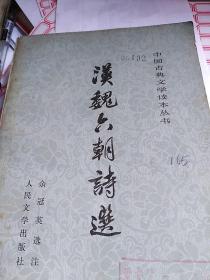 中国古典文学读本丛书
漢魏六朝詩選
余冠英选注
人民文学出版社
165